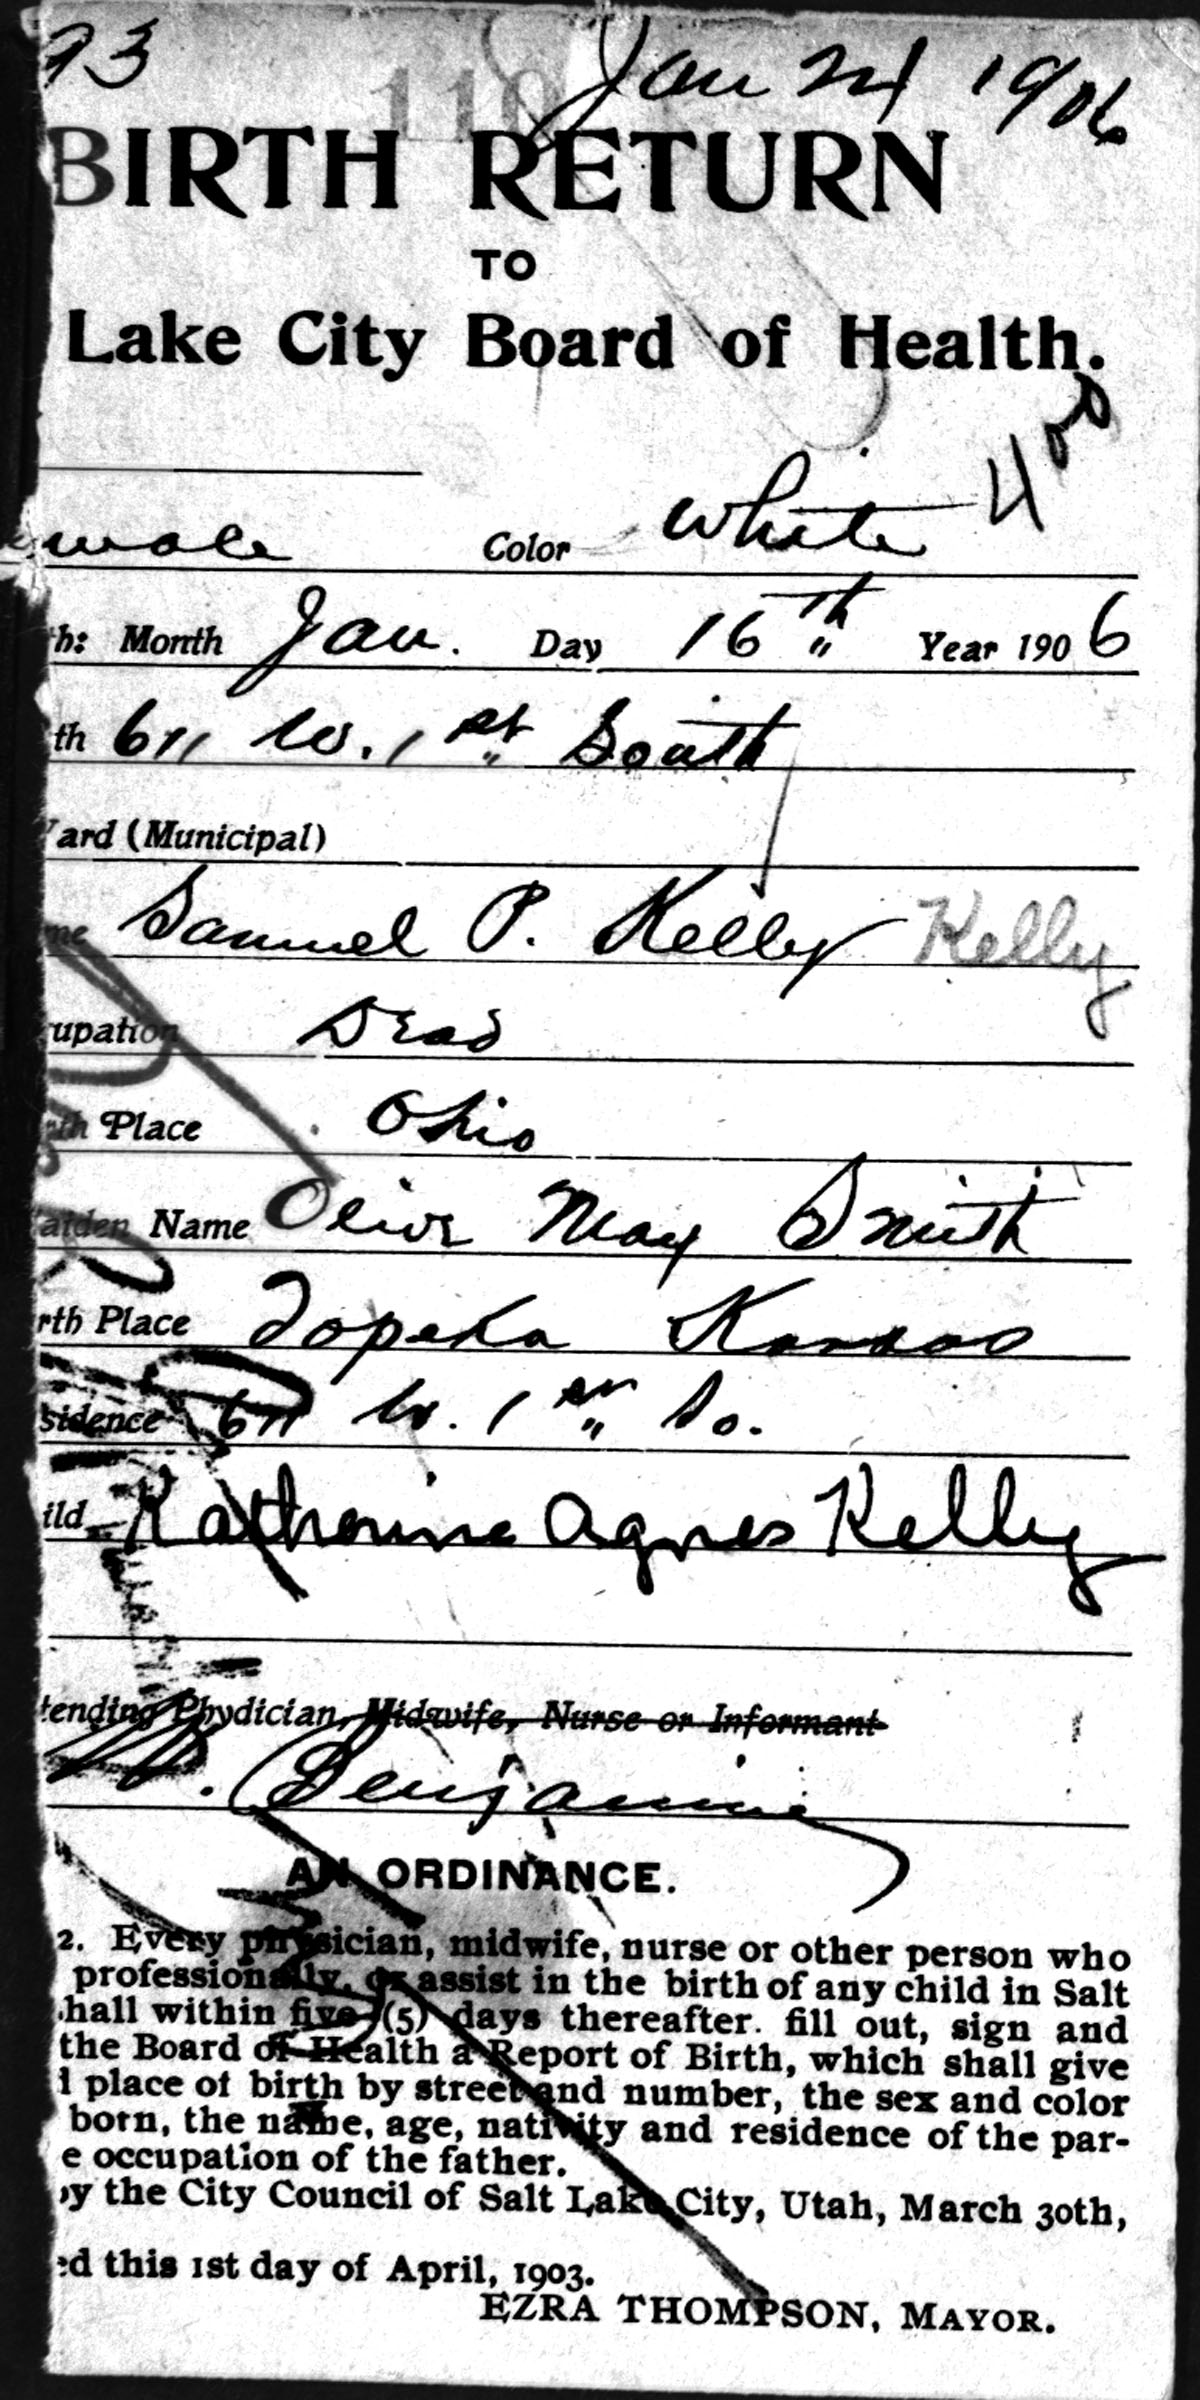 93 Jan 24 1906
110
BIRTH RETURN
TO
Lake City Board of Health.
male Color White
th: Month Jan. Day 16th Year 1906
th 611 W. 1st South
ard (Municipal)
me Samuel P. Kelly Kelly
upation Dead
rth Place Ohio
aiden Name Olive May Smith
rth Place Topeka Kansas
sidence 611 W. 1st So.
ild Katherine Agnes Kelly
tending Phydician, Midwife, Nurse or Informant
Benjamin
AN ORDINANCE.
2. Every physician, midwife, nurse or other person who
professionally, or assist in the birth of any child in Salt
hall within five (5) days thereafter. fill out, sign and
the Board of Health a Report of Birth, which shall give
d place of birth by street and number, the sex and color
born, the name, age, nativity and residence of the par-
e occupation of the father.
by the City Council of Salt Lake City, Utah, March 30th,
ed this 1st day of April, 1903.
EZRA THOMPSON, MAYOR.